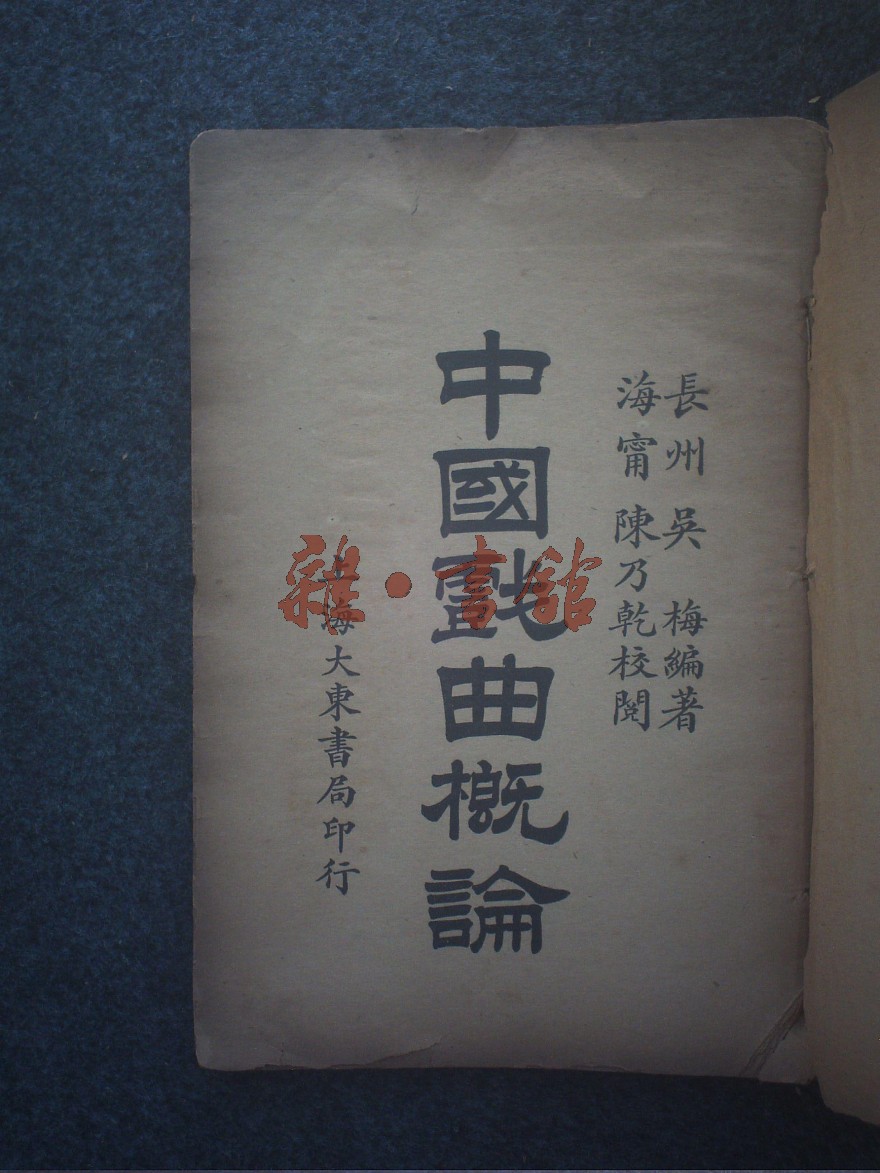 長州 吳 梅編著
海甯 陳乃乾校閱
中國戲曲概論
上海大東書局印行
雜·書舘